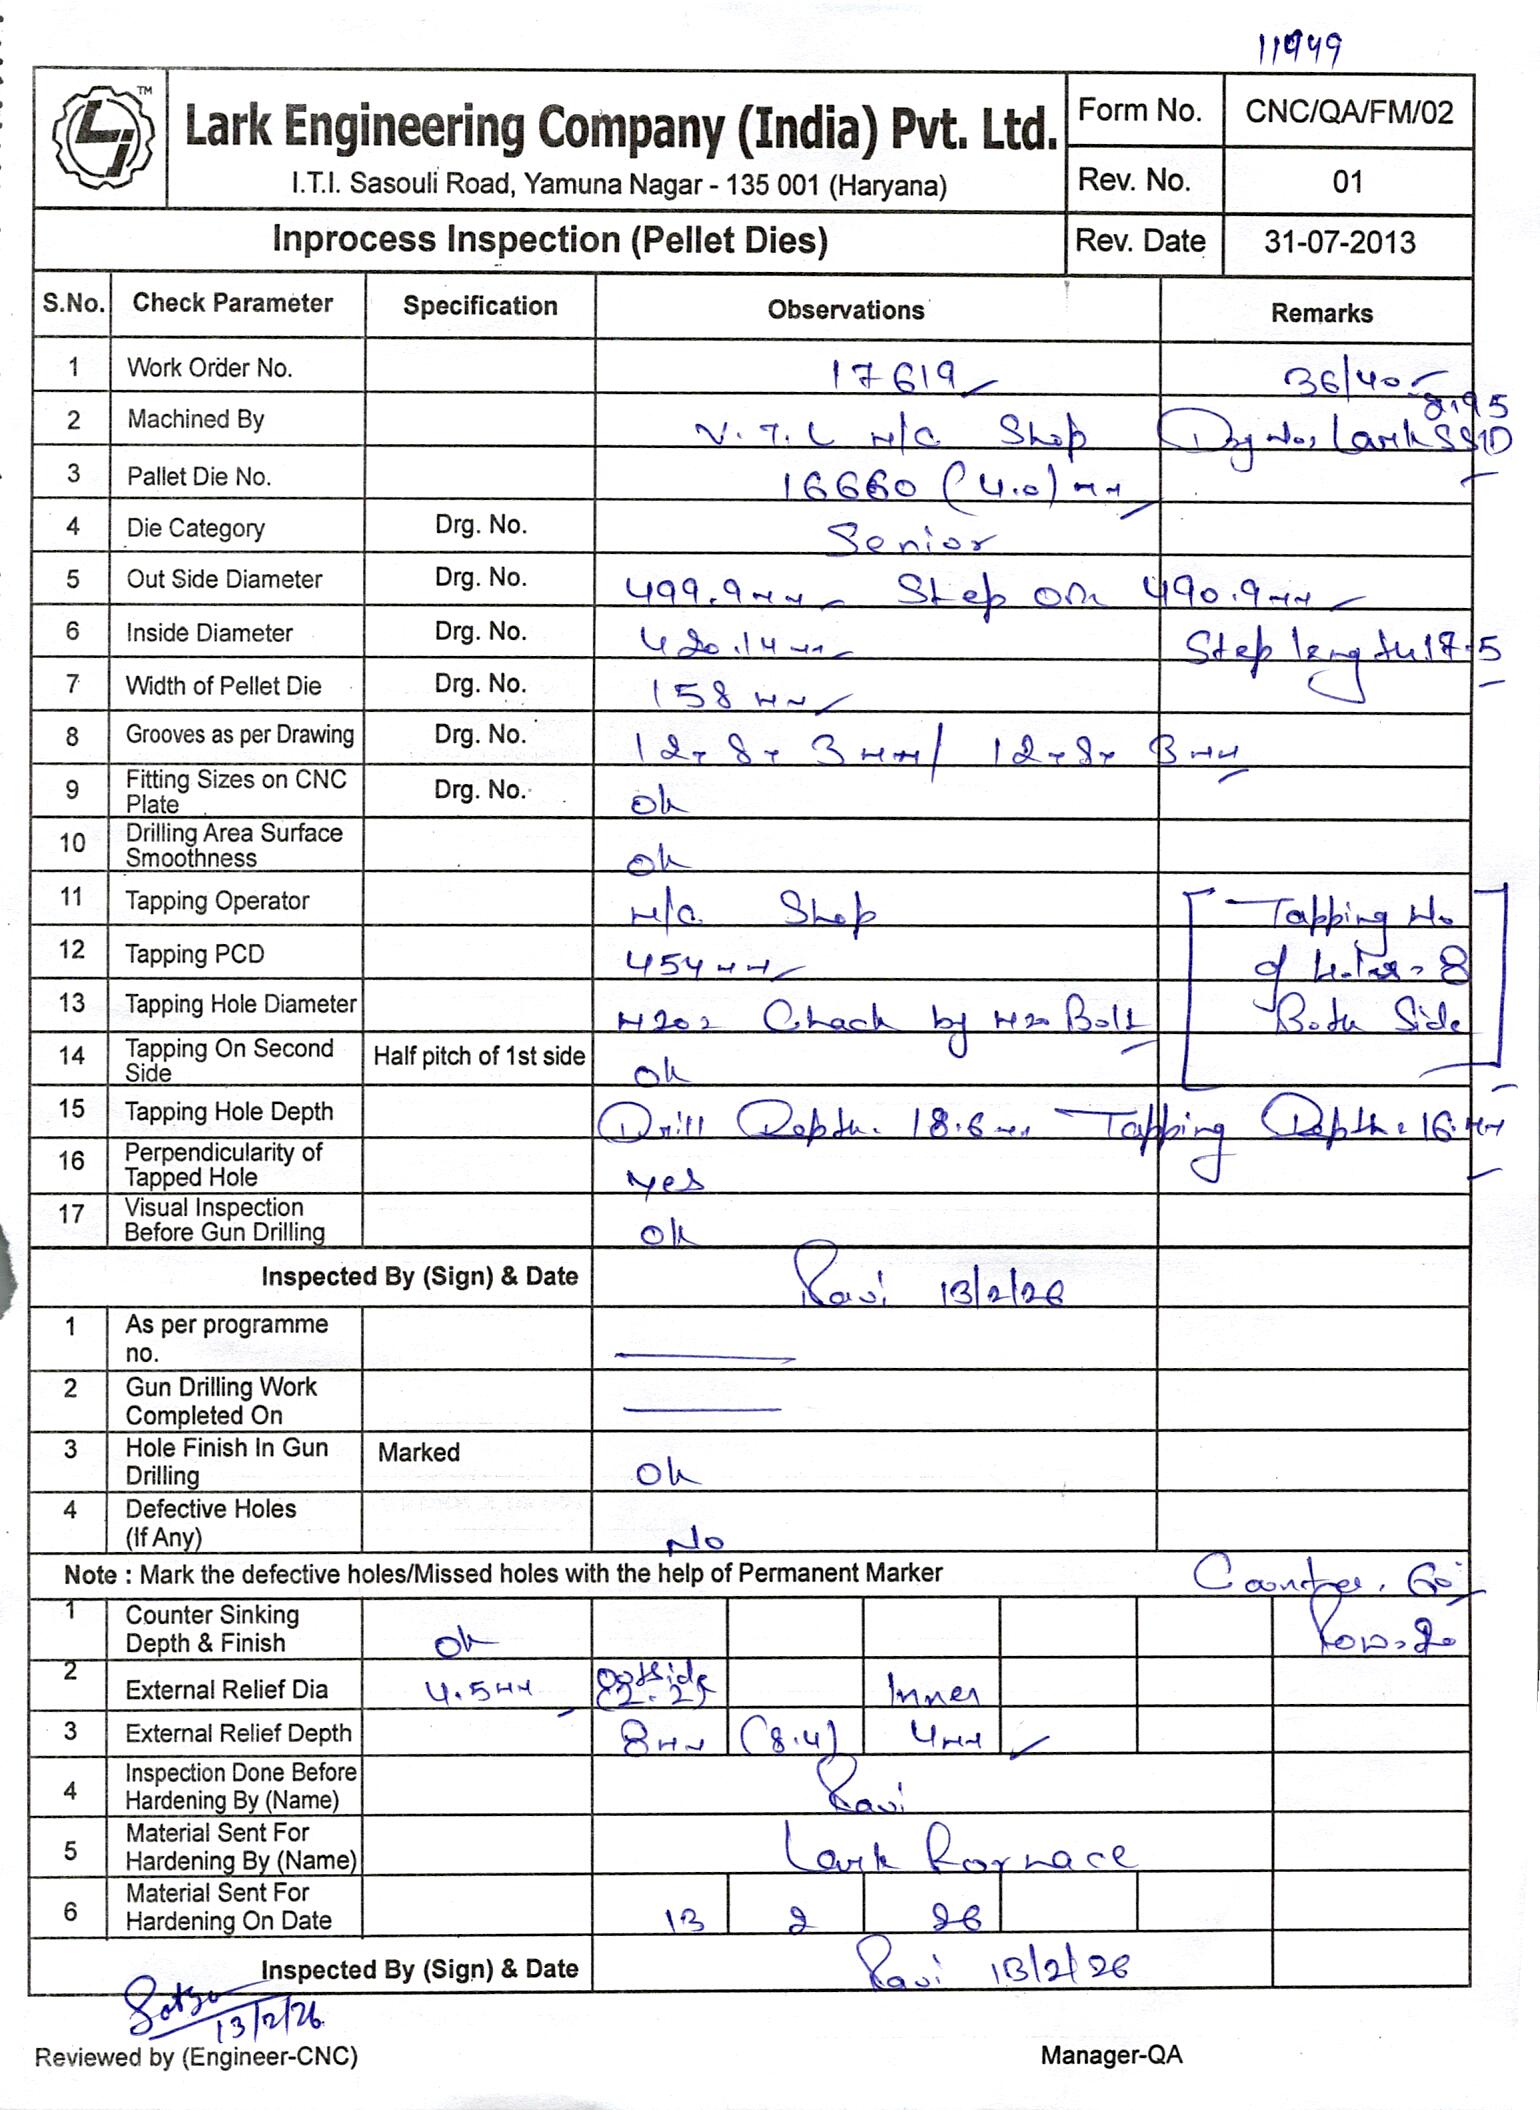 11949
TM
Lark Engineering Company (India) Pvt. Ltd.
I.T.I. Sasouli Road, Yamuna Nagar - 135 001 (Haryana)
Form No. CNC/QA/FM/02
Rev. No. 01
Inprocess Inspection (Pellet Dies)
Rev. Date 31-07-2013
S.No. Check Parameter Specification Observations Remarks
1 Work Order No. 17619 36/40
2 Machined By V.T.L M/C Shop Drg No. Lark SS1D
2.95
3 Pallet Die No. 16660 (4.0) mm
4 Die Category Drg. No. Senior
5 Out Side Diameter Drg. No. 499.9mm Step on 490.9mm
6 Inside Diameter Drg. No. 420.14mm Step length 17.5
7 Width of Pellet Die Drg. No. 158 mm
8 Grooves as per Drawing Drg. No. 12 x 8 x 3 mm / 12 x 8 x 3 mm
9 Fitting Sizes on CNC
Plate Drg. No. Ok
10 Drilling Area Surface
Smoothness Ok
11 Tapping Operator M/C Shop Tapping No
12 Tapping PCD 454mm of Holes = 8
13 Tapping Hole Diameter M20 = Chack by M20 Bolt Both Side
14 Tapping On Second
Side Half pitch of 1st side Ok
15 Tapping Hole Depth Drill Depth. 18.6mm Tapping Depth = 16mm
16 Perpendicularity of
Tapped Hole yes
17 Visual Inspection
Before Gun Drilling Ok
Inspected By (Sign) & Date Ravi 13/2/26
1 As per programme
no.
2 Gun Drilling Work
Completed On
3 Hole Finish In Gun
Drilling Marked Ok
4 Defective Holes
(If Any) No
Note : Mark the defective holes/Missed holes with the help of Permanent Marker Counter. 60
1 Counter Sinking
Depth & Finish Ok Row = 20
2 External Relief Dia 4.5mm Outside (2-2) Inner
3 External Relief Depth 8mm (8.4) 4mm
4 Inspection Done Before
Hardening By (Name) Ravi
5 Material Sent For
Hardening By (Name) Lark Fornace
6 Material Sent For
Hardening On Date 13 2 26
Inspected By (Sign) & Date Ravi 13/2/26
13/2/26
Reviewed by (Engineer-CNC) Manager-QA